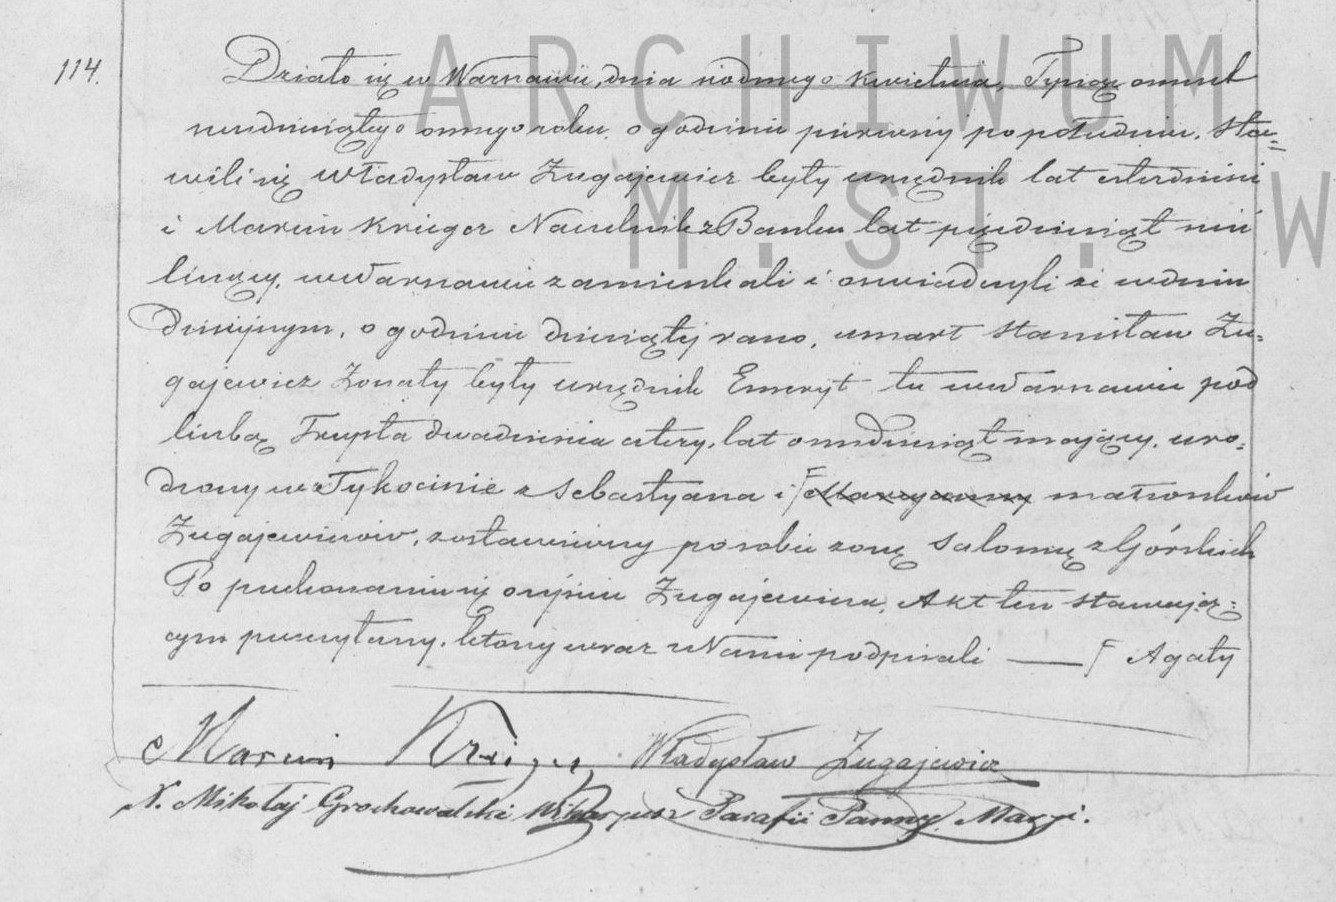 ARCHIWUM
M. ST. W
114.
Działo się w Warszawie, dnia siódmego Kwietnia, Tysiąc ośmset
sześćdziesiątego ósmego roku, o godzinie pierwszej po południu. Sta=
wili się Władysław Zugajewicz były urzędnik lat czterdzieści
i Marcin Krieger Naczelnik z Banku lat pięćdziesiąt sześć
liczący, w Warszawie zamieszkali i oświadczyli że w dniu
dzisiejszym, o godzinie dziewiątej rano, umarł Stanisław Zu=
gajewicz żonaty były urzędnik Emeryt tu w Warszawie pod
liczbą Trzysta dwadzieścia cztery, lat ośmdziesiąt mający, uro=
dzony w Tykocinie z Sebastyana i Maryanny małżonków
Zugajewiczów, zostawiwszy po sobie żonę Salomeę z Górskich
Po przekonaniu się o zejściu Zugajewicza, Akt ten stawają=
cym przeczytany, który wraz z Nami podpisali — Agaty
Marcin Krieger Władysław Zugajewicz
X. Mikołaj Grochowalski Wikaryusz Parafii Panny Maryi.